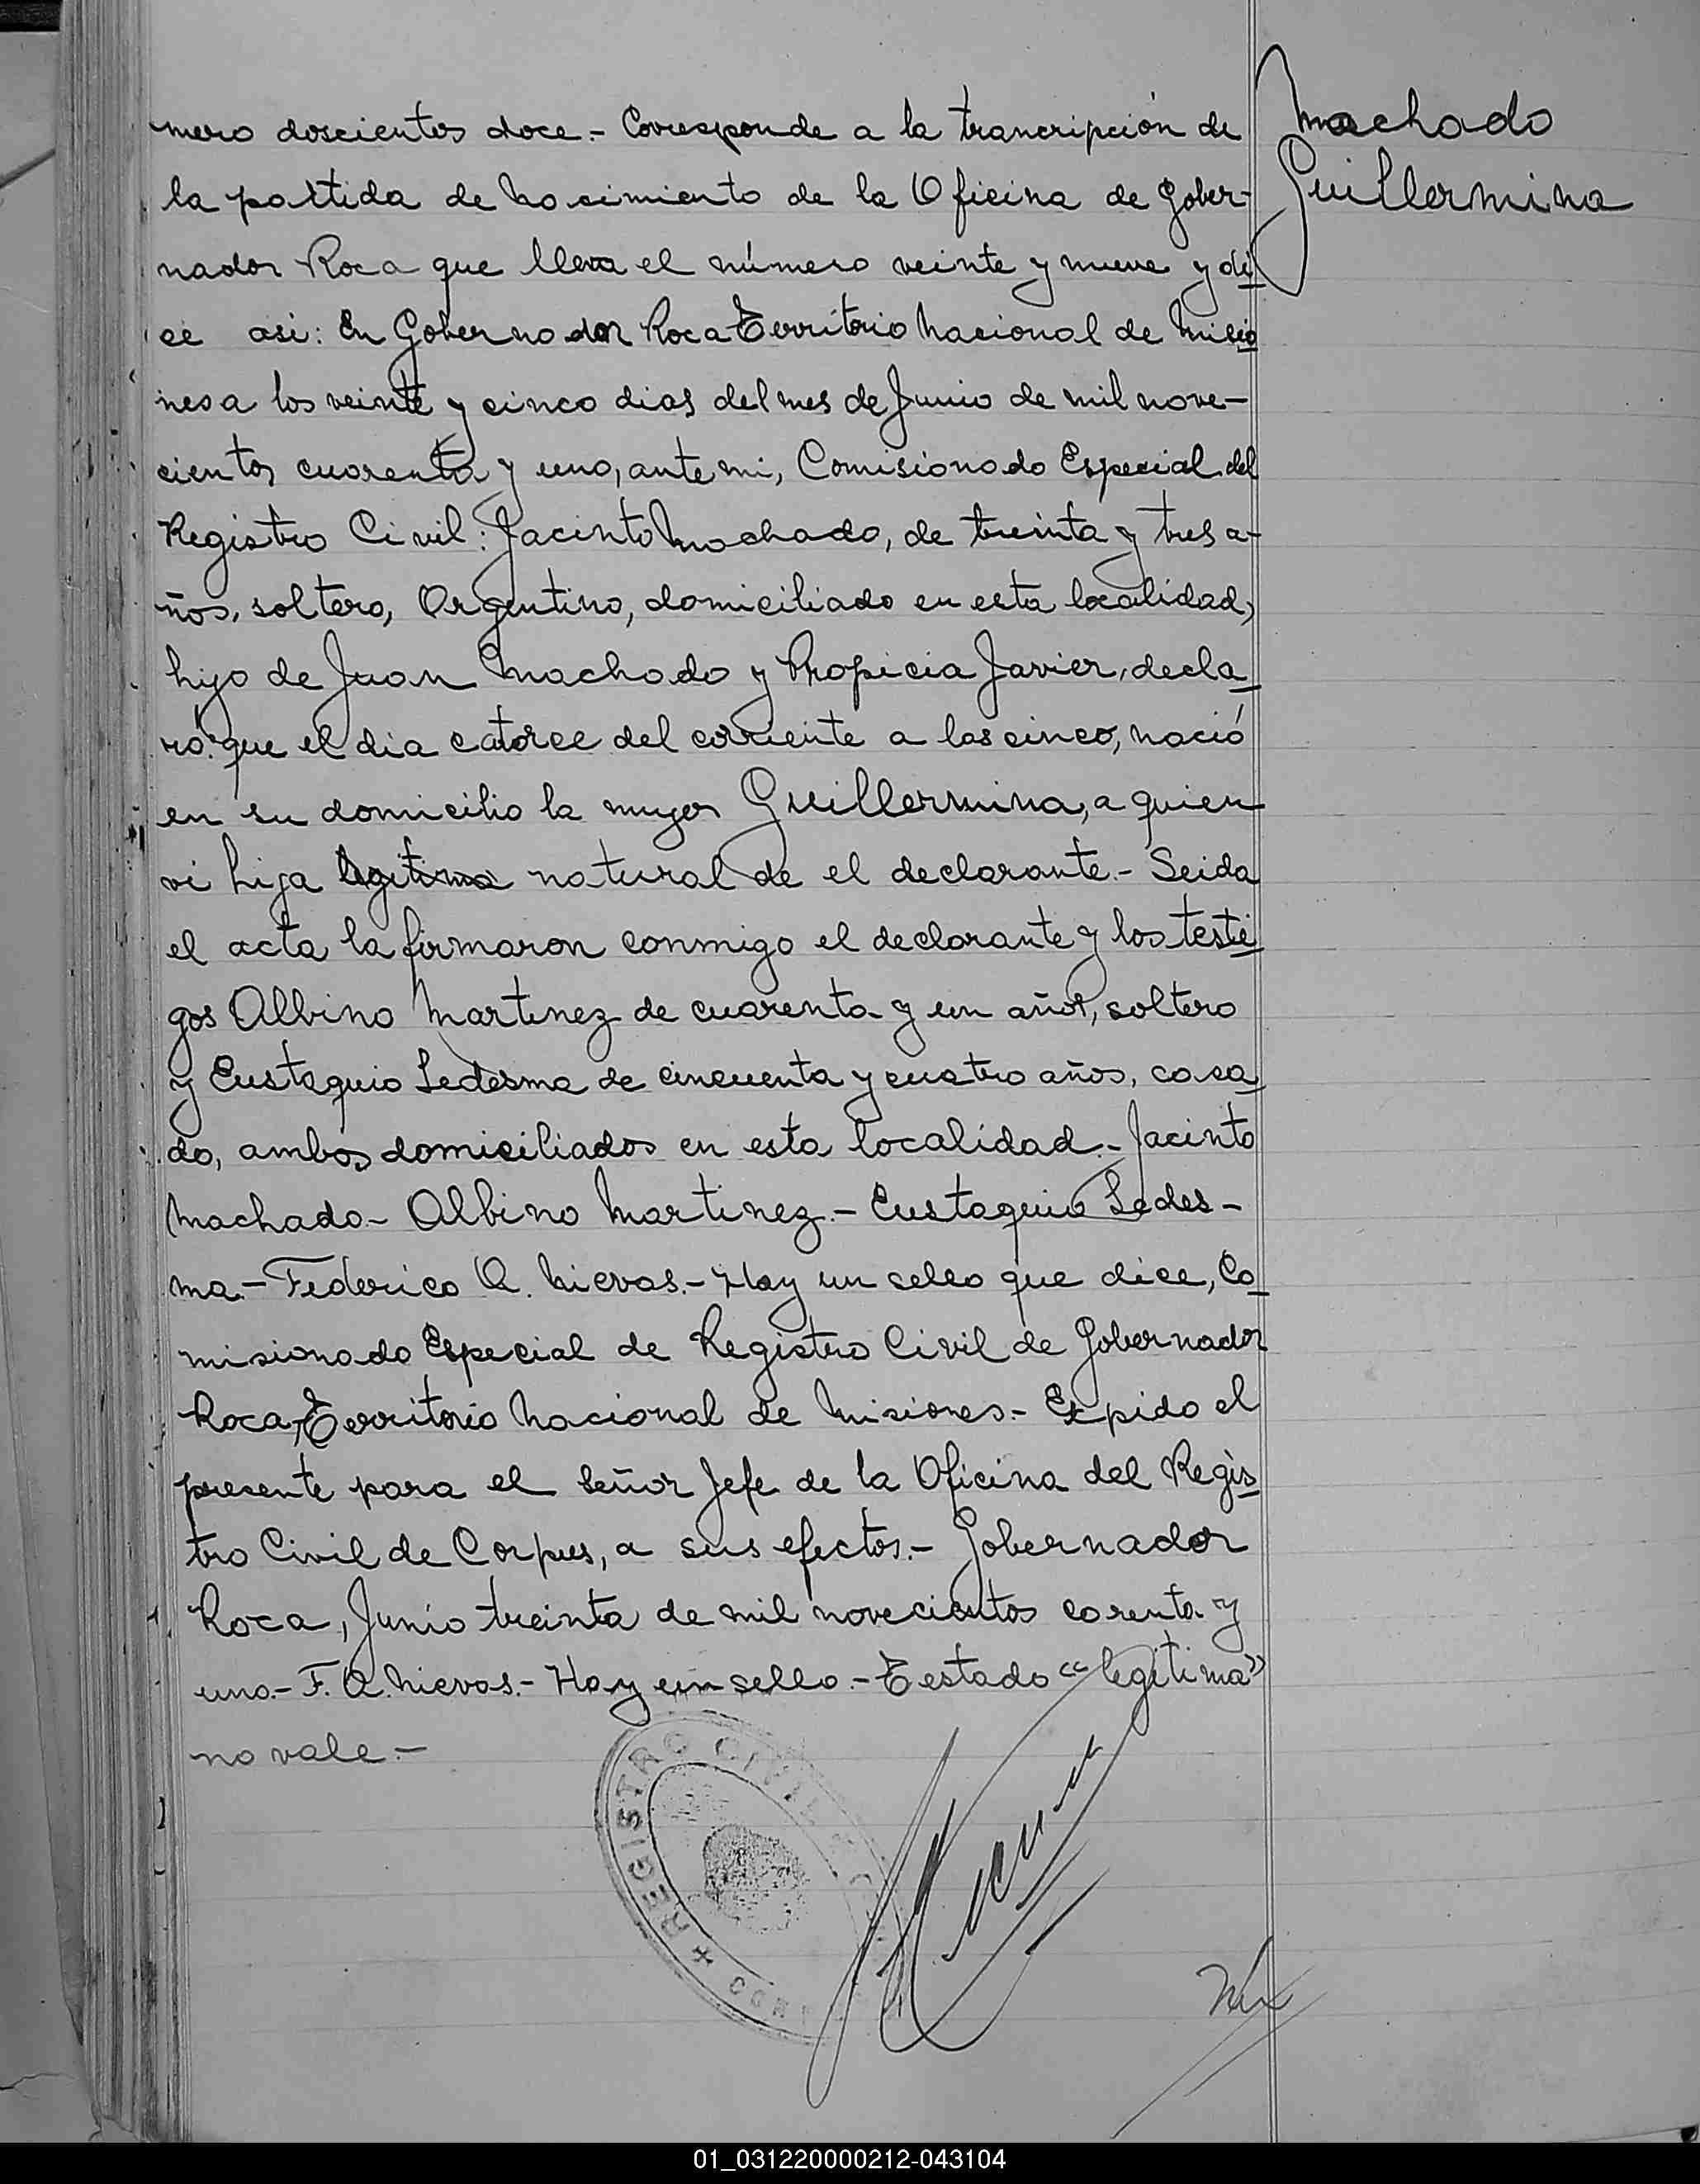 mero doscientos doce.- Corresponde a la trancripción de
la partida de nacimiento de la Oficina de Gober-
nador Roca que lleva el número veinte y nueve y di
ce asi: En Gobernador Roca Territorio Nacional de Misio
nes a los veinte y cinco dias del mes de Junio de mil nove-
cientos cuarenta y uno, ante mi, Comisionado Especial del
Registro Civil: Jacinto Machado, de treinta y tres a-
ños, soltero, Argentino, domiciliado en esta localidad,
hijo de Juan Machado y Propicia Javier, decla
ró: que el dia catorce del corriente a las cinco, nació
en su domicilio la mujer Guillermina, a quien
vi hija legitima natural de el declarante.- Leida
el acta la firmaron conmigo el declarante y los testi
gos Albino Martinez de cuarenta y un años, soltero
y Eustaquio Ledesma de cincuenta y cuatro años, casa
do, ambos domiciliados en esta localidad.- Jacinto
Machado- Albino Martinez.- Eustaquio Ledes-
ma.- Federico A. Nievas.- Hay un sello que dice, Co
misionado Especial de Registro Civil de Gobernador
Roca, Territorio Nacional de Misiones.- Expido el
presente para el Señor Jefe de la Oficina del Regis
tro Civil de Corpus, a sus efectos.- Gobernador
Roca, Junio treinta de mil novecientos corenta y
uno.- F. A. Nievas.- Hay un sello.- Testado "legitima"
no vale.-
Machado
Guillermina
REGISTRO CIVIL
01_031220000212-043104